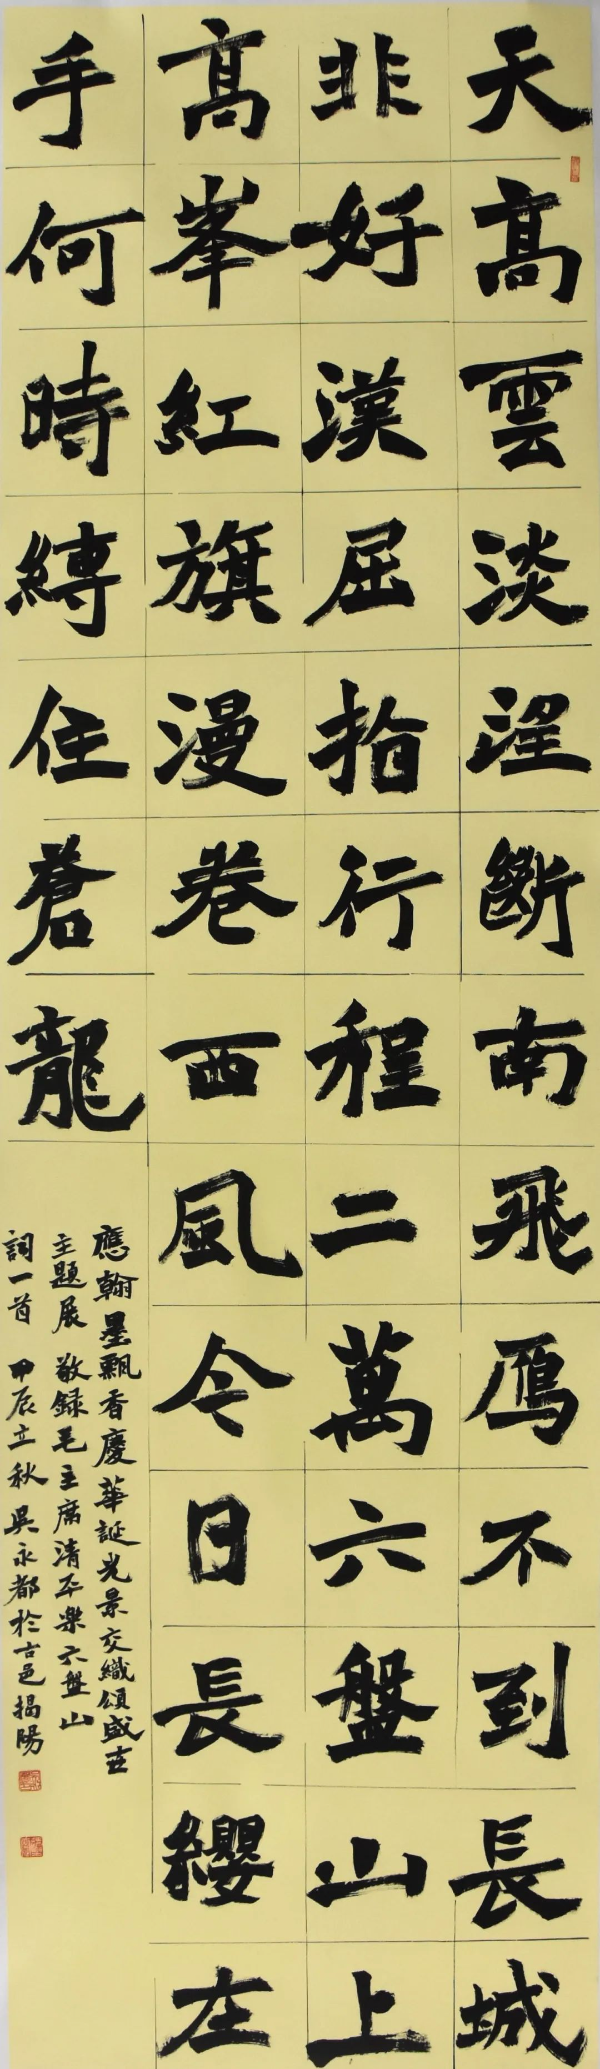 天高雲淡望斷南飛鴈不到長城
非好漢屈指行程二萬六盤山上
高峯紅旗漫卷西風今日長纓在
手何時縛住蒼龍
應翰墨飄香慶華誕光景交織頌盛世
主題展 敬録毛主席清平樂六盤山
詞一首 甲辰立秋吳永都於古邑揭陽